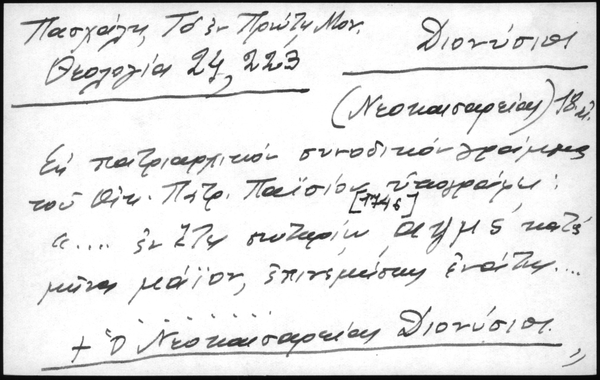 Πασχάλη, Τὸ ἐν Πρώτῃ Μον.
Θεολογία 24, 223
Διονύσιος
(Νεοκαισαρείας) 18 αἰ.
Εἰς πατριαρχικὸν συνοδικὸν γράμμα
τοῦ Οἰκ. Πατρ. Παϊσίου ὑπογράφει:
[1746]
".... ἐν ἔτει σωτηρίῳ αψμς΄ κατὰ
μῆνα μάϊον, ἐπινεμήσεως ἐνάτης....
+ ὁ Νεοκαισαρείας Διονύσιος.